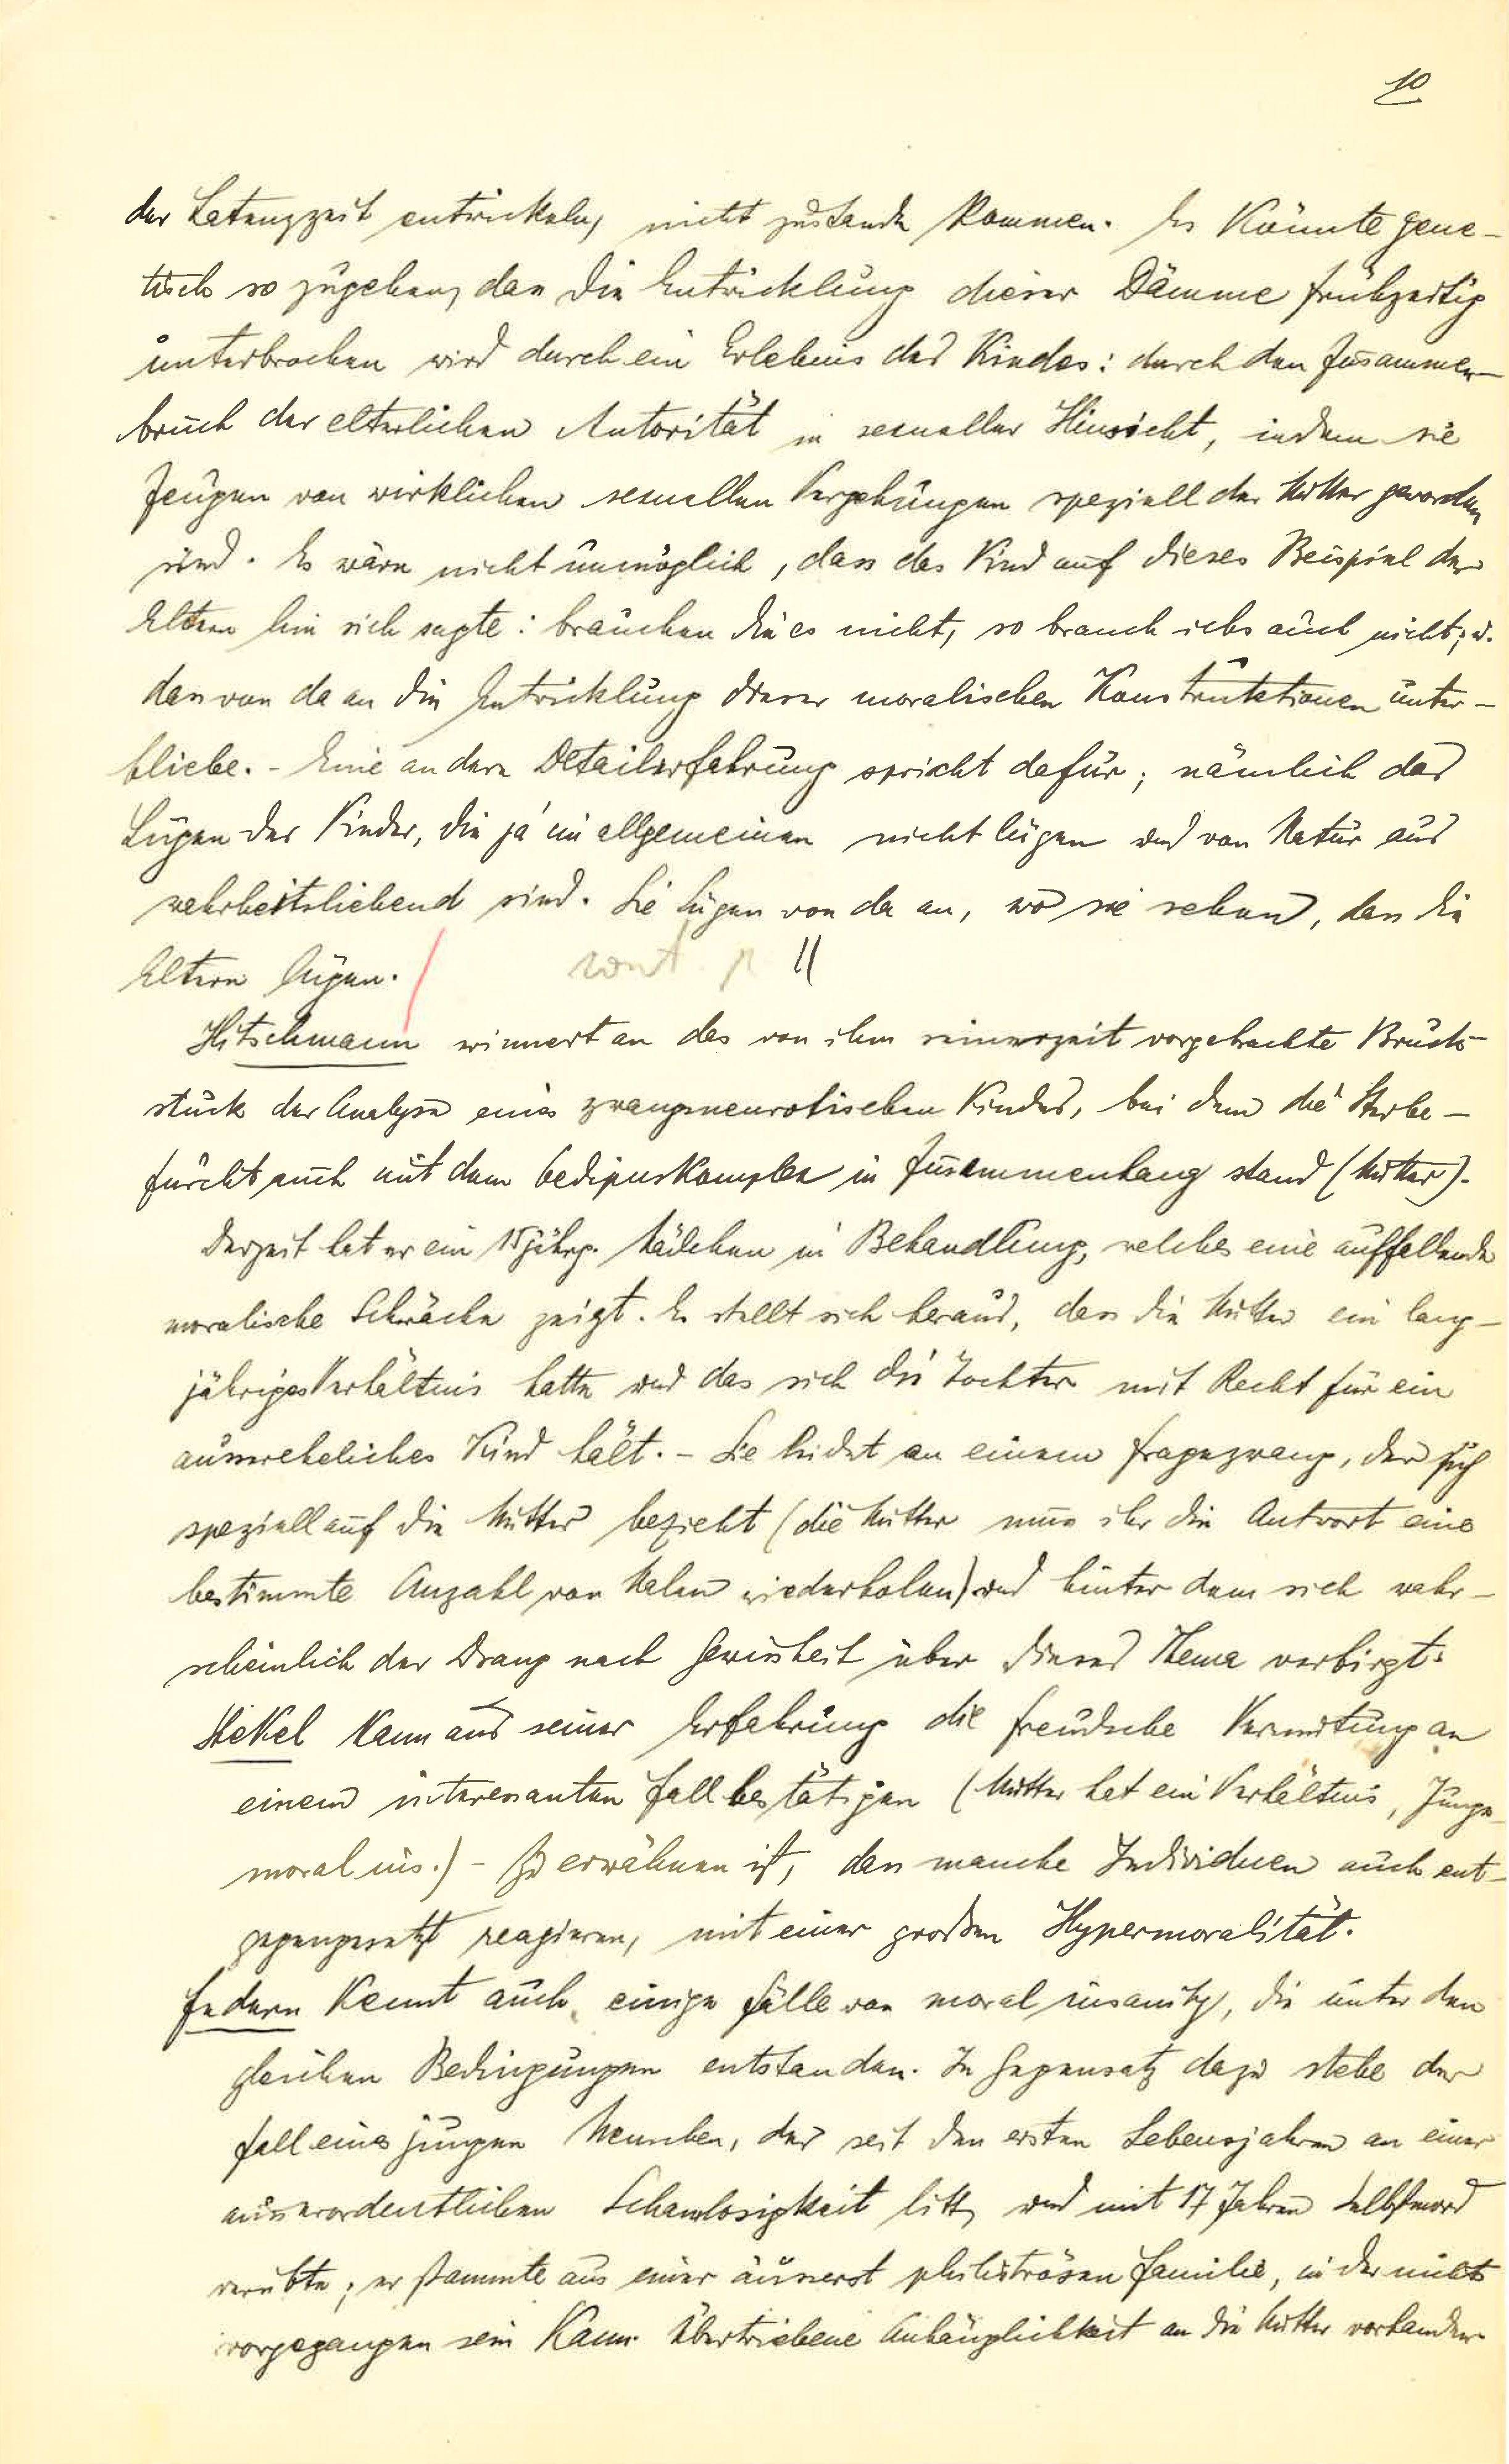 10
der Latenzzeit entwickeln, nicht zustande kommen. Es könnte gene-
tisch so zugehen, dass die Entwicklung dieser Dämme frühzeitig
unterbrochen wird durch ein Erlebnis des Kindes: durch den Zusammen-
bruch der elterlichen Autorität in sexueller Hinsicht, indem sie
Zeugen von wirklichen sexuellen Vergehungen speziell der Mutter geworden
sind. Es wäre nicht unmöglich, dass das Kind auf dieses Beispiel der
Eltern hin sich sagte: brauchen die es nicht, so brauch ichs auch nicht; u.
dass von da an die Entwicklung dieser moralischen Konstruktionen unter-
bliebe. - Eine andere Detailerfahrung spricht dafür; nämlich das
Lügen der Kinder, die ja im allgemeinen nicht lügen und von Natur aus
wahrheitsliebend sind. Sie lügen von da an, wo sie sehen, dass die
Eltern lügen.
Hitschmann erinnert an das von ihm seinerzeit vorgebrachte Bruch-
stück der Analyse eines zwangsneurotischen Kindes, bei dem die Sterbe-
furcht auch mit dem Oedipuskomplex in Zusammenhang stand (Mutter).
Derzeit hat er ein 15jährg. Mädchen in Behandlung, welches eine auffallende
moralische Schwäche zeigt. Es stellt sich heraus, dass die Mutter ein lang-
jähriges Verhältnis hatte und das sich die Tochter mit Recht für ein
aussereheliches Kind hält. - Sie leidet an einem Fragezwang, der sich
speziell auf die Mutter bezieht (die Mutter muss ihr die Antwort eine
bestimmte Anzahl von Malen wiederholen) und hinter dem sich wahr-
scheinlich der Drang nach Gewissheit über dieses Thema verbirgt.
Stekel kann aus seiner Erfahrung die Freudsche Vermutung an
einem interessanten Fall bestätigen (Mutter hat ein Verhältnis, Junge
moral ins.) - Zu erwähnen ist, dass manche Individuen auch ent-
gegengesetzt reagieren, mit einer großen Hypermoralität.
Federn kennt auch einige Fälle von moral insanity, die unter den
gleichen Bedingungen entstanden. Im Gegensatz dazu stehe der
Fall eines jungen Menschen, der seit den ersten Lebensjahren an einer
ausserordentlichen Schamlosigkeit litt und mit 17 Jahren Selbstmord
verübte; er stammte aus einer äusserst philiströsen Familie, in der nichts
vorgegangen sein kann. Übertriebene Anhänglichkeit an die Mutter vorhanden.